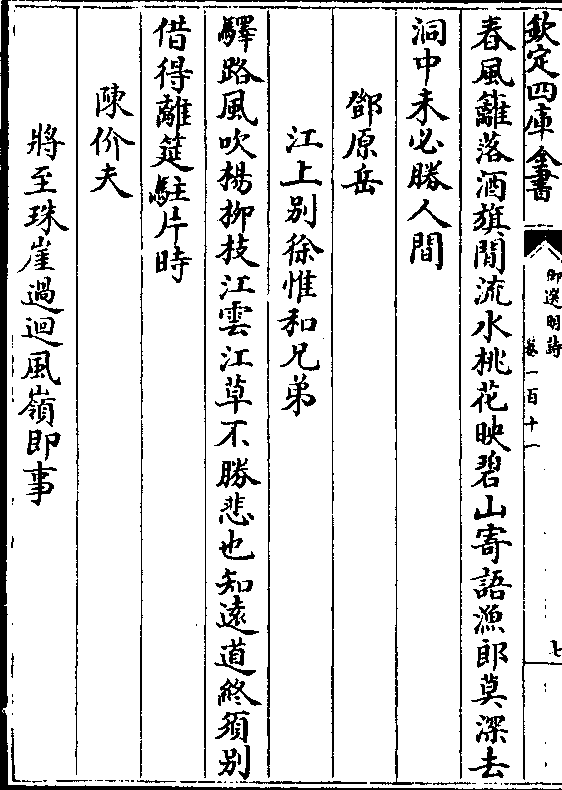 欽定四庫全書
御選明詩
卷一百十一
七
春風籬落酒旗閒流水桃花映碧山寄語漁郎莫深去
洞中未必勝人間
鄧原岳
江上别徐惟和兄弟
驛路風吹楊柳枝江雲江草不勝悲也知遠道終須别
借得離筵駐片時
陳价夫
將至珠崖過迴風嶺即事